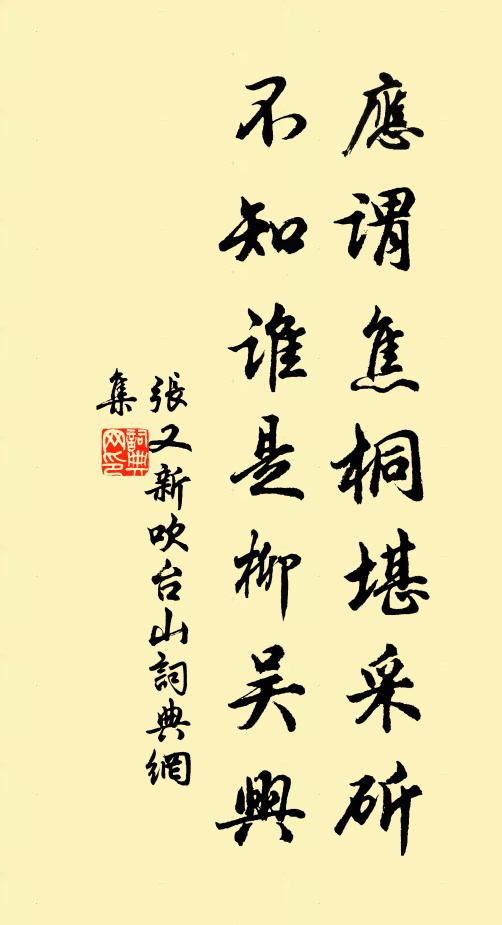 應謂焦桐堪采斫
不知誰是柳吳興
張又新吹台山詞典網
集
詞典网印